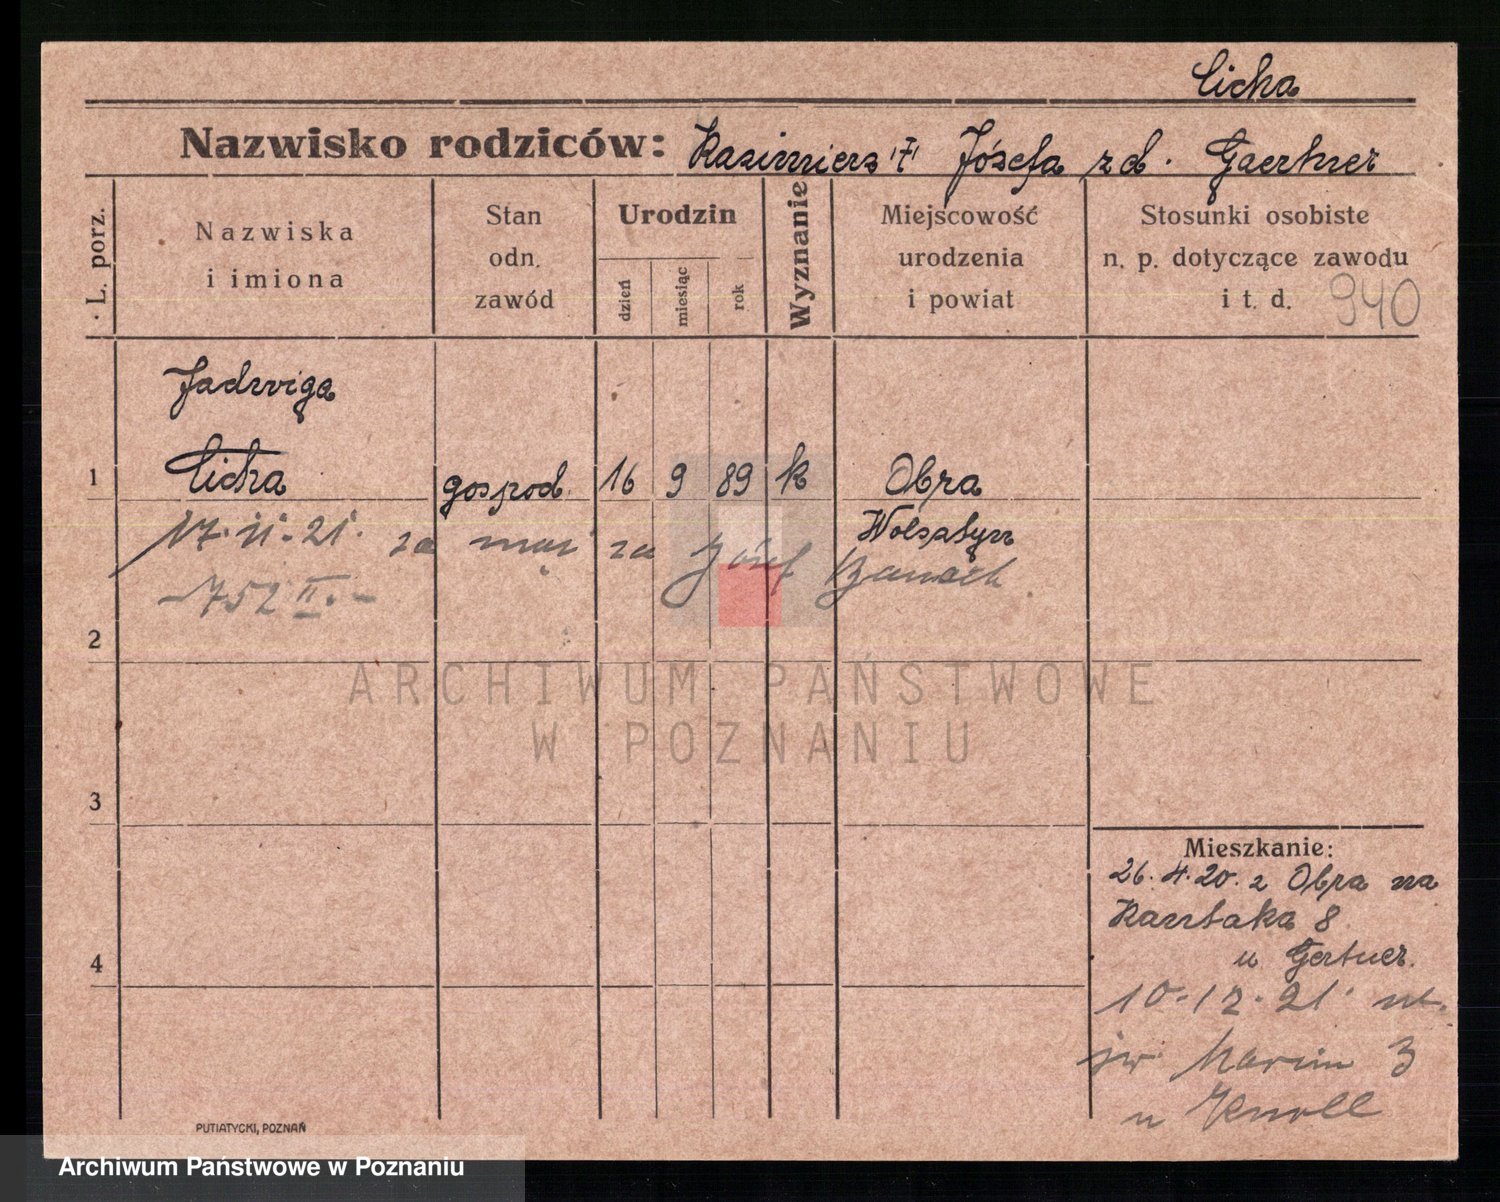 Cicha
Nazwisko rodziców: Kazimierz '†' Józefa zd. Gaertner
L. porz.
Nazwiska
i imiona
Stan
odn.
zawód
Urodzin
dzień
miesiąc
rok
Wyznanie
Miejscowość
urodzenia
i powiat
Stosunki osobiste
n. p. dotyczące zawodu
i t. d. 940
Jadwiga
1 Cicha gospod. 16 9 89 k Obra
Wolsztyn
17. 11. 21. za mąż za Józef Banach
- 752 II. -
2
3
4
Mieszkanie:
26. 4. 20. z Obra na
Kantaka 8
u Gertner.
10. 12. 21
św. Marcin 3
u Knoll
PUTIATYCKI, POZNAŃ
ARCHIWUM PAŃSTWOWE
W POZNANIU
Archiwum Państwowe w Poznaniu